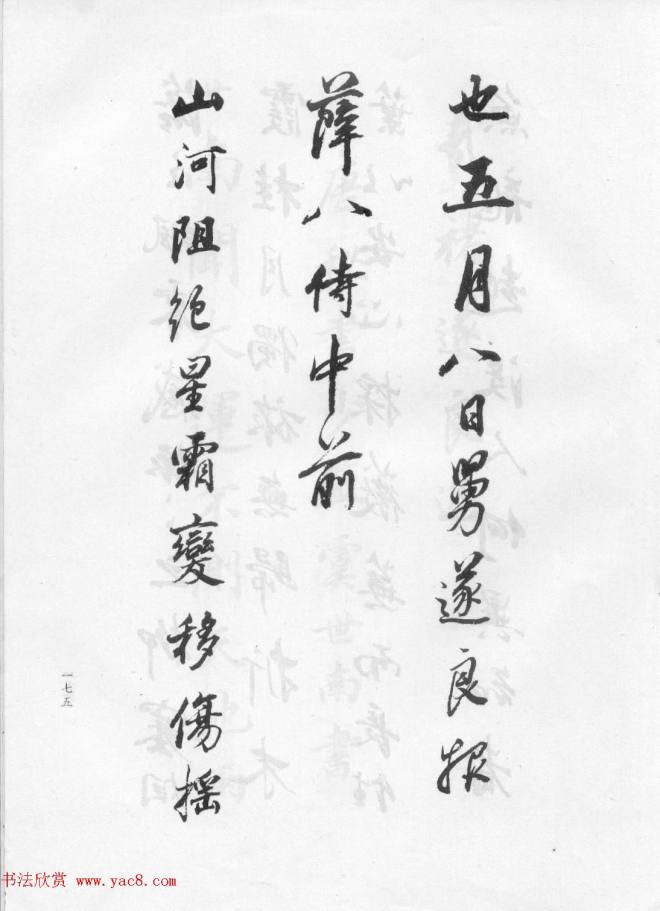 也五月八日舅遂良報
薛八侍中前
山河阻絕星霜變移傷摇
一七五
书法欣赏 www.yac8.com